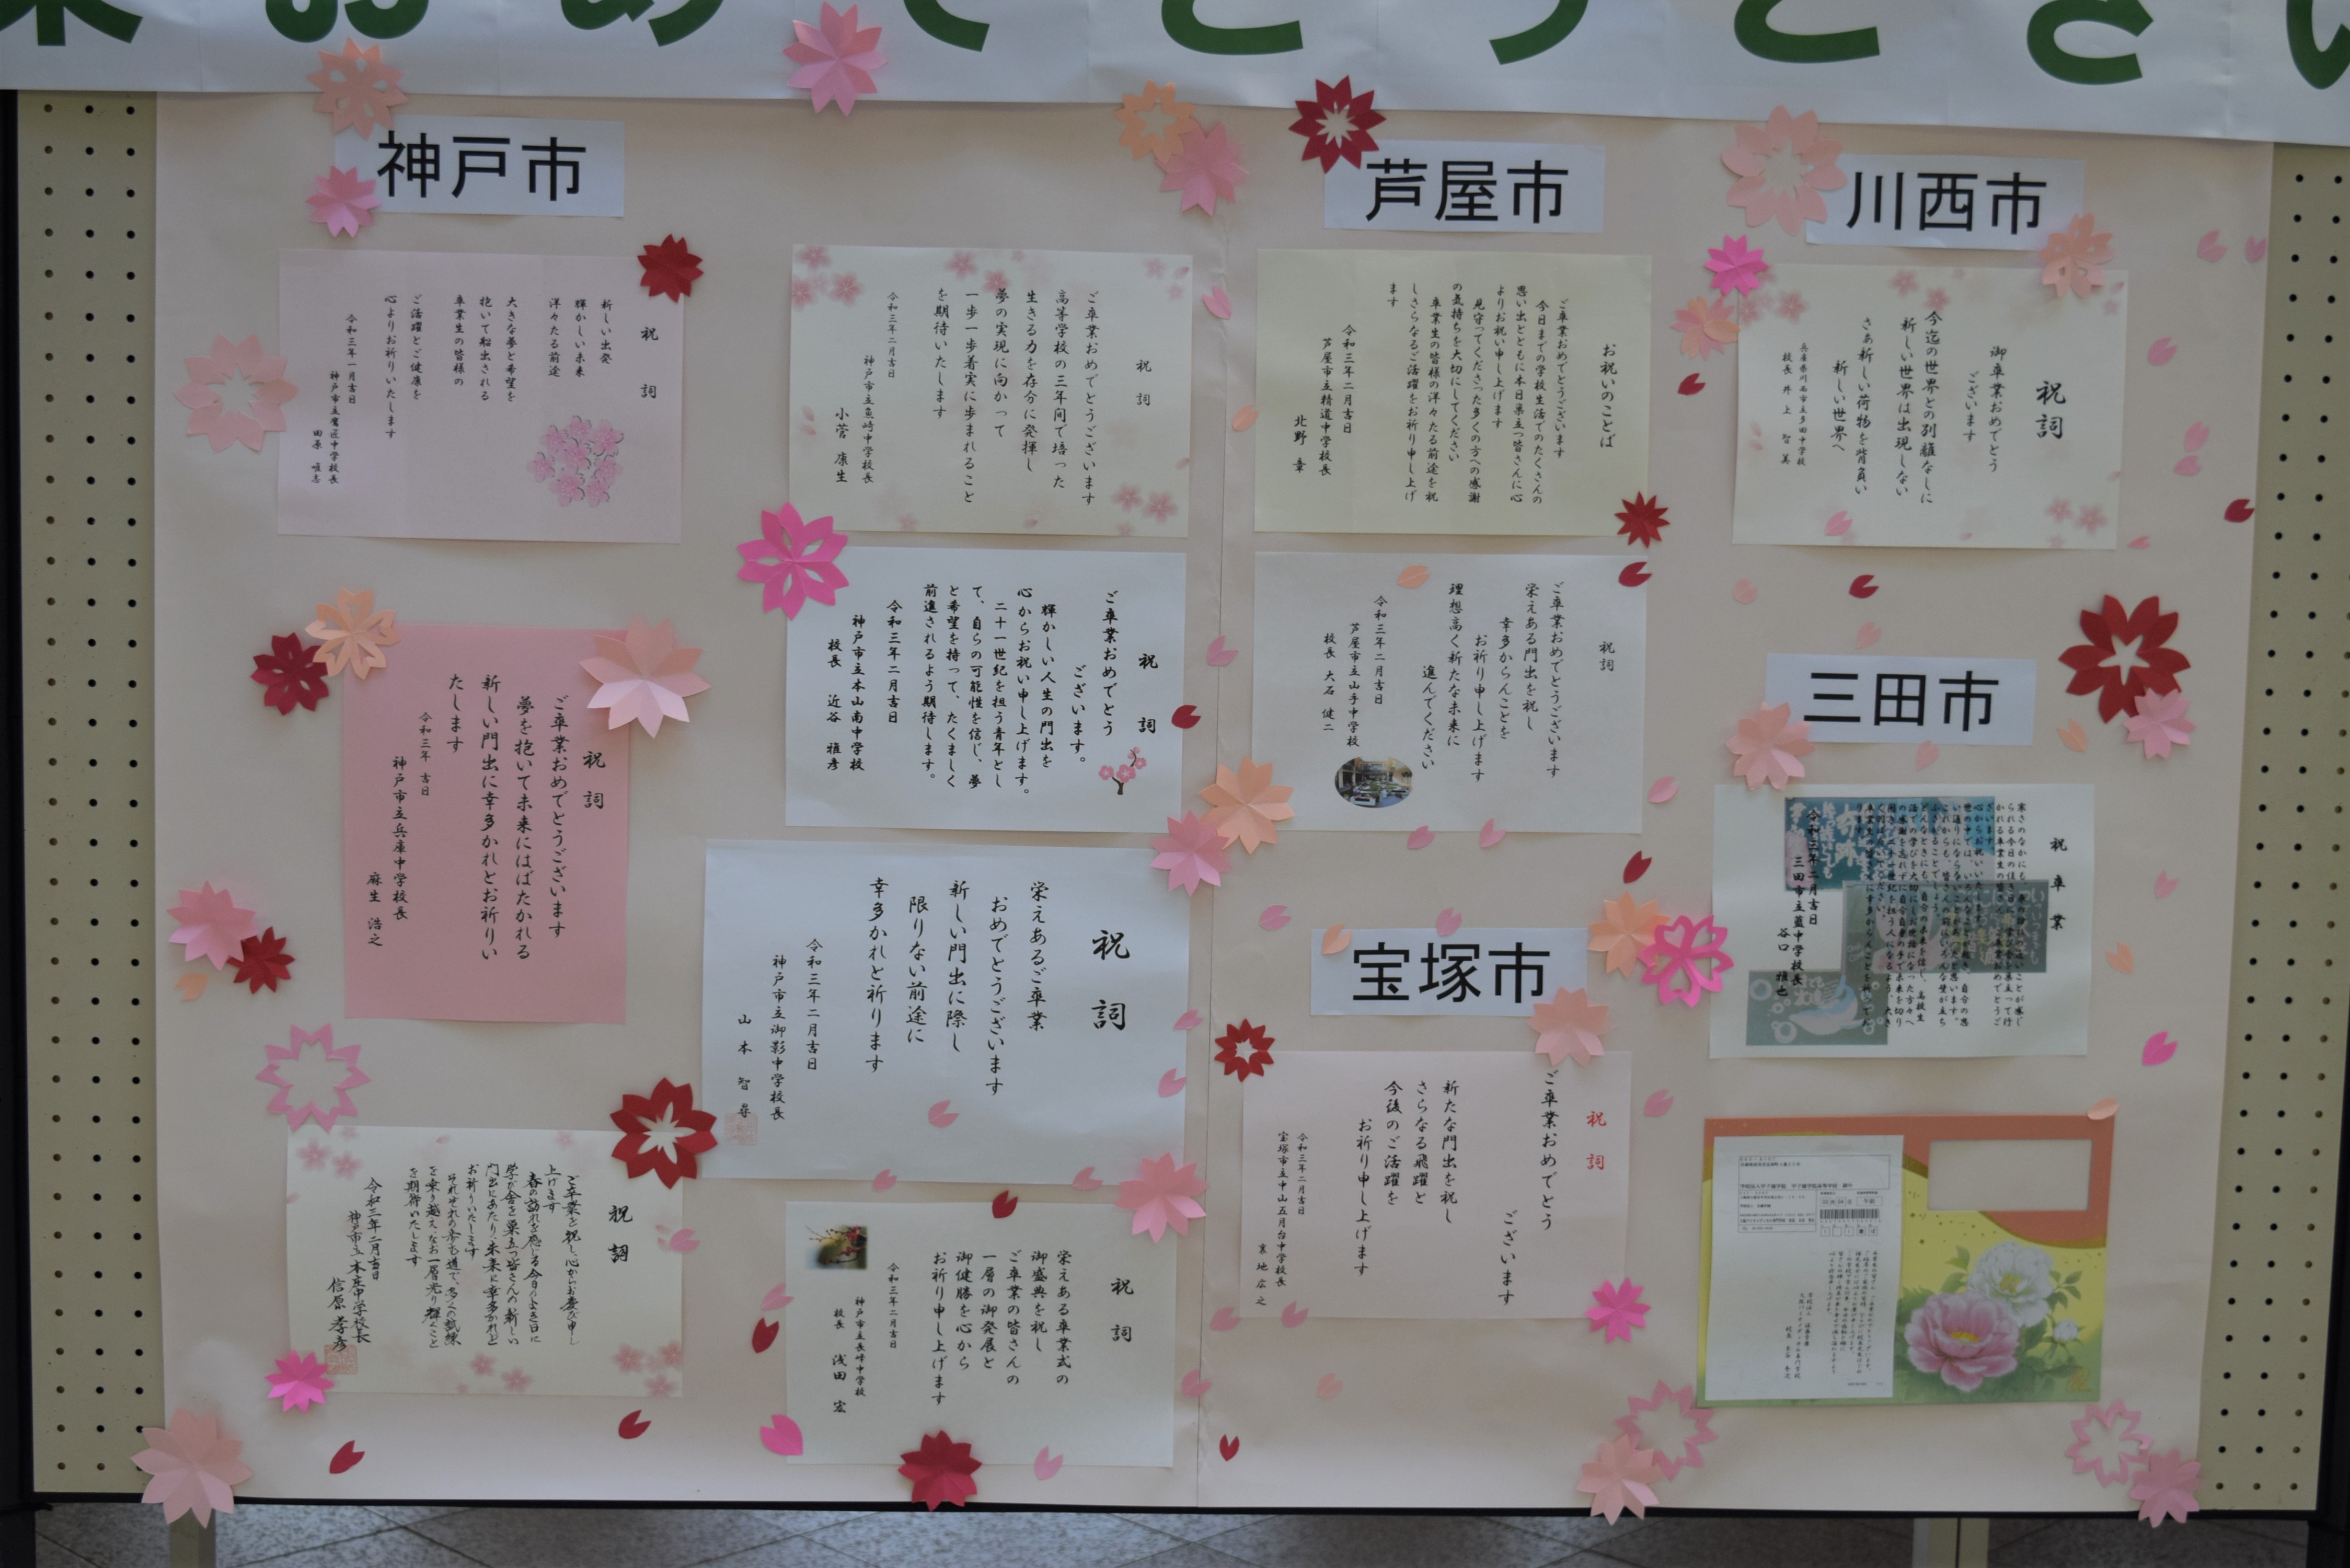 業おめでとうござい
神戸市
祝 詞
新しい出発
輝かしい未来
洋々たる前途
大きな夢と希望を
抱いて船出される
卒業生の皆様の
ご活躍とご健康を
心よりお祈りいたします
令和三年一月吉日
神戸市立鷹匠中学校長
田原
祝 詞
ご卒業おめでとうございます
夢を抱いて未来にはばたかれる
新しい門出に幸多かれとお祈りい
たします
令和三年 吉日
神戸市立兵庫中学校長
麻生 浩之
祝 詞
ご卒業を祝し、心からお慶び申し
上げます
春の訪れを感じる今日のよき日に
学び舎を巣立つ皆さんの新しい
門出にあたり、未来に幸多かれと
お祈りいたします
それぞれの歩む道で、多くの試練
を乗り越え、なお一層光り輝くこと
を期待いたします
令和三年二月吉日
神戸市立本庄中学校長
信原 孝彦
祝 詞
ご卒業おめでとうございます
高等学校の三年間で培った
生きる力を存分に発揮し
夢の実現に向かって
一歩一歩着実に歩まれること
を期待いたします
令和三年二月吉日
神戸市立魚崎中学校長
小菅 康生
祝 詞
ご卒業おめでとう
ございます。
輝かしい人生の門出を
心からお祝い申し上げます。
二十一世紀を担う青年とし
て、自らの可能性を信じ、夢
と希望を持って、たくましく
前進されるよう期待します。
令和三年二月吉日
神戸市立本山南中学校
校長 近谷 雅彦
祝 詞
栄えあるご卒業
おめでとうございます
新しい門出に際し
限りない前途に
幸多かれと祈ります
令和三年二月吉日
神戸市立御影中学校長
山本 智尋
祝 詞
栄えある卒業式の
御盛典を祝し
ご卒業の皆さんの
一層の御発展と
御健勝を心から
お祈り申し上げます
令和三年二月吉日
神戸市立長峰中学校
校長 浅田 宏
芦屋市
お祝いのことば
ご卒業おめでとうございます
今日までの学校生活でのたくさんの
思い出とともに本日巣立つ皆さんに心
よりお祝い申し上げます
見守ってくださった多くの方への感謝
の気持ちを大切にしてください
卒業生の皆様の洋々たる前途を祝
しさらなるご活躍をお祈り申し上げ
ます
令和三年二月吉日
芦屋市立精道中学校長
北野 章
祝詞
ご卒業おめでとうございます
栄えある門出を祝し
幸多からんことを
お祈り申し上げます
理想高く新たな未来に
進んでください
令和三年二月吉日
芦屋市立山手中学校
校長 大石 健二
宝塚市
祝 詞
ご卒業おめでとう
ございます
新たな門出を祝し
さらなる飛躍と
今後のご活躍を
お祈り申し上げます
令和三年二月吉日
宝塚市立中山五月台中学校長
地 広之
川西市
祝詞
御卒業おめでとう
ございます
今迄の世界との別離なしに
新しい世界は出現しない
さぁ新しい荷物を背負い
新しい世界へ
兵庫県川西市立多田中学校
校長 井上 智美
三田市
祝 卒 業
令和三年二月吉日
三田市立藍中学校長
谷口 雅也